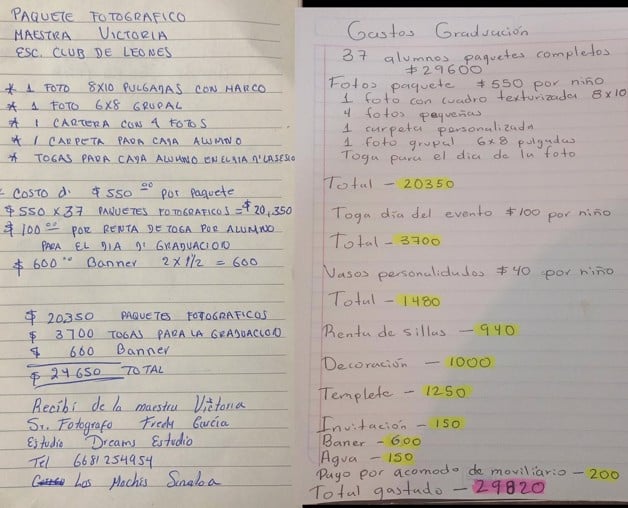 PAQUETE FOTOGRAFICO
MAESTRA VICTORIA
ESC. CLUB DE LEONES
* 1 FOTO 8X10 PULGADAS CON MARCO
* 1 FOTO 6X8 GRUPAL
* 1 CARTERA CON 4 FOTOS
* 1 CARPETA PARA CADA ALUMNO
* TOGAS PARA CADA ALUMNO EN EL DIA D' LA SESIO
- COSTO d. $550.00 por paquete
$550 x 37 PAQUETES FOTOGRAFICOS = $20,350
$100.00 POR RENTA DE TOGA POR ALUMNO
PARA EL DIA D' GRADUACION
$600.00 Banner 2 x 1/2 = 600
$ 20350 PAQUETES FOTOGRAFICOS
$ 3700 TOGAS PARA LA GRADUACION
$ 600 Banner
$ 24650 TOTAL
Recibí de la maestra Victoria
Sr. Fotografo Fredy García
Estudio Dreams Estudio
Tel 6681254954
Los Mochis Sinaloa
Gastos Graduación
37 alumnos paquetes completos
$29600
Fotos paquete $550 por niño
1 foto con cuadro texturizada 8x10
4 fotos pequeñas
1 carpeta personalizada
1 foto grupal 6x8 pulgadas
Toga para el dia de la foto
Total - 20350
Toga dia del evento $100 por niño
Total - 3700
Vasos personalidudos $40 por niño
Total - 1480
Renta de sillas - 940
Decoración - 1000
Templete - 1250
Invitación - 150
Baner - 600
Agua - 150
Pago por acomodo de moviliario - 200
Total gastado - 29820